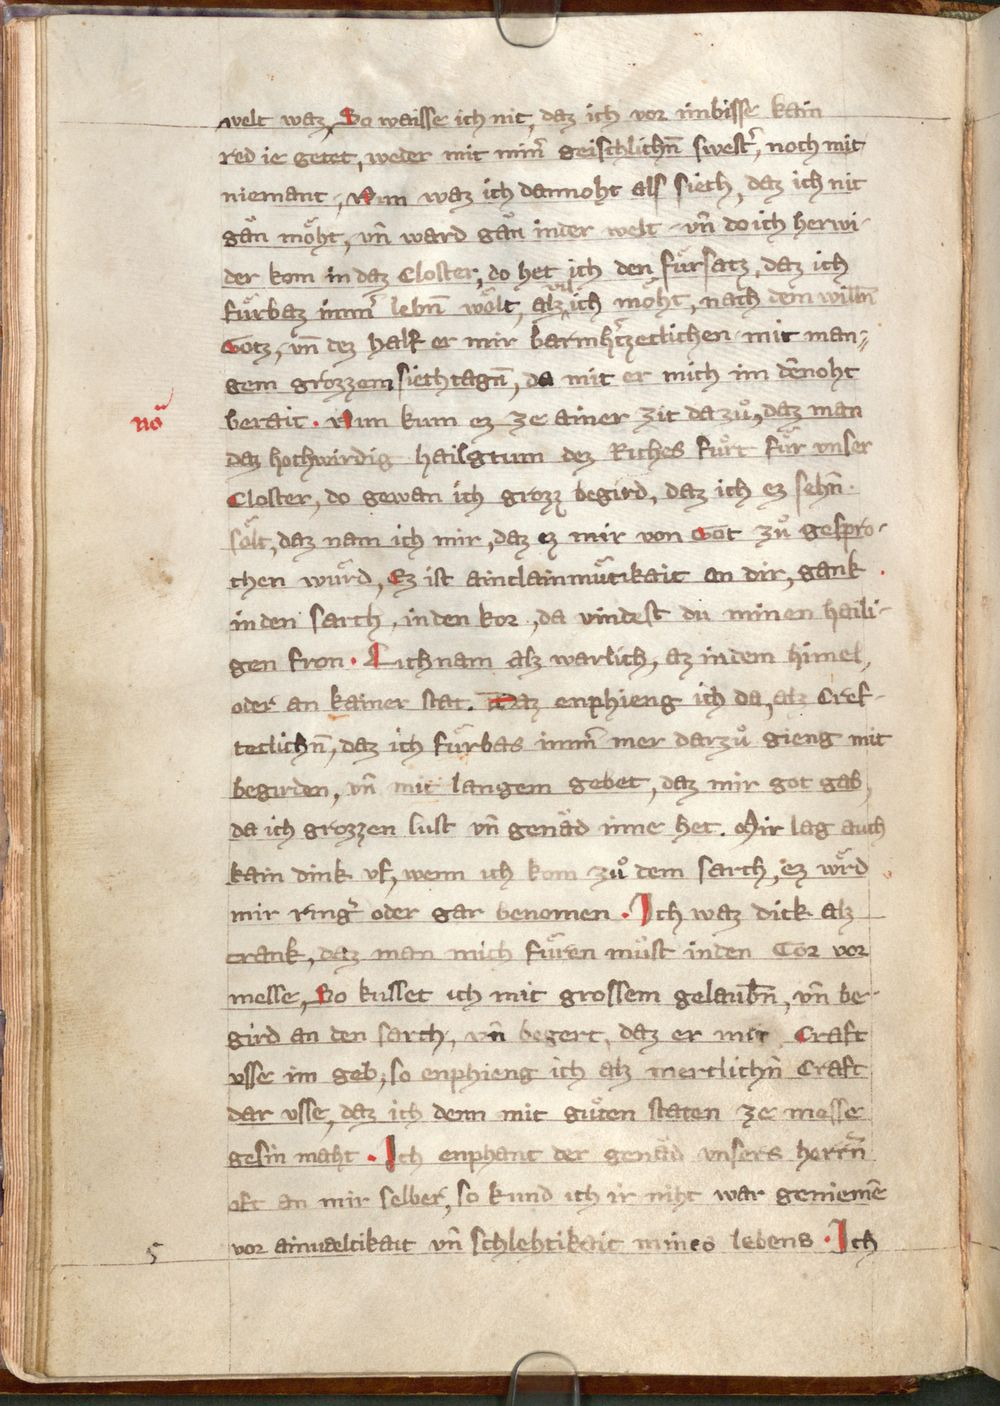 welt waz, So waisse ich nit, daz ich vor imbisse kain
red ie getet, weder mit minr̄ geischlichn̄ swestr̄, noch mit
niemant, Nun waz ich dannoht als siech, daz ich nit
gän möht, vn̄ ward gän inder welt, vn̄ do ich herwi-
der kom in daz Closter, do het ich den fürsatz, daz ich
fürbaz immr̄ lebn̄ wölt, alz vil ich möht, nach dem willn̄
Gotz, vn̄ dez half er mir barmhr̄tzeclichen mit man-
gem grozzem siechtagn̄, da mit er mich im dēnoht
nō
berait. Nun kum ez ze ainer zit dazuͦ, daz man
daz hochwirdig hailgtum dez Riches fuͦrt für vnser
Closter, do gewan ich grozz begird, daz ich ez sehn̄
sölt, daz nam ich mir, daz ez mir von Got zuͦ gespro-
chen würd, Ez ist ainclainmütikait an dir, gank
inden sarch, inden kor, da vindest du minen haili-
gen fron. Lichnam alz warlich, az indem himel,
oder an kainer stat. Daz enphieng ich da, alz Cref-
teclichn̄, daz ich fürbas immr̄ mer darzuͦ gieng mit
begirden, vn̄ mit langem gebet, daz mir got gab,
da ich grozzen lust vn̄ genäd inne het. Mir lag auch
kain dink vf, wenn ich kom zuͦ dem sarch, ez würd
mir ringr̄ oder gar benomen. Ich waz dick alz
crank, daz man mich füren muͦst inden Cor vor
messe, So kusset ich mit grossem gelaubn̄, vn̄ be-
gird an den sarch, vn̄ begert, daz er mir Craft
vsse im geb, so enphieng ich alz mertlichn̄ Craft
dar vsse, daz ich denn mit guͦten staten ze messe
gesin maht. Ich enphant der genäd vnsers herrn̄
oft an mir selber, so kund ich ir niht war geniemē
vor ainueltikait vn̄ schlehtikait mines lebens. Ich